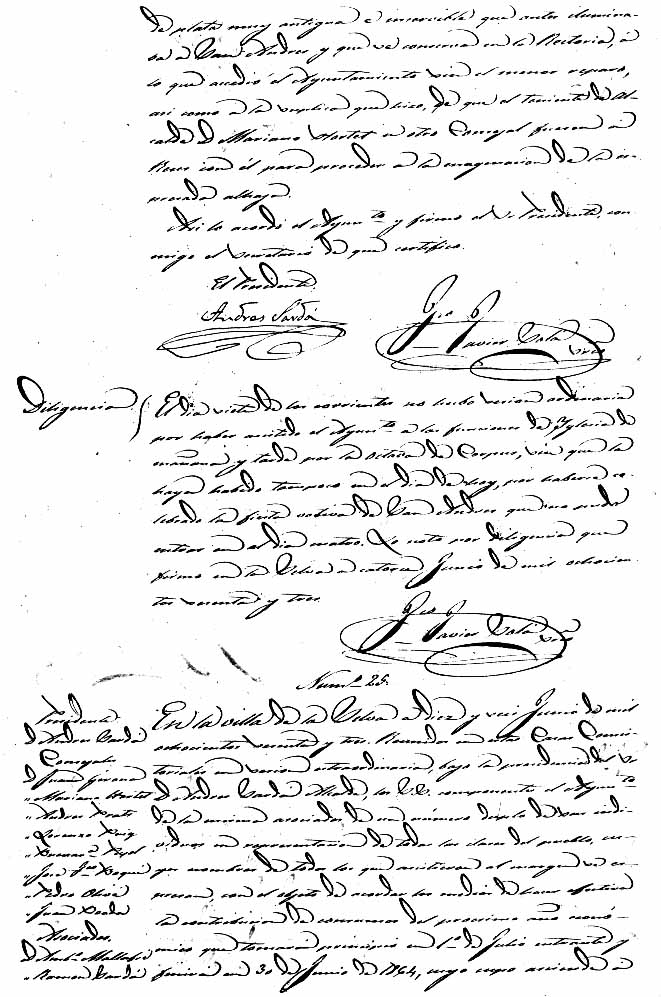 de plata muy antigua é inservible que antes ilumina-
ba á San Andres y que se conserva en la Rectoria, á
lo que accedió el Ayuntamiento sin el menor reparo,
asi como á la suplica que hizo, de que el teniente de Al-
calde D. Mariano Hortet ú otro Concejal fuesen á
Reus con él para proceder á la enagenacion de la in-
dicada alhaja.
Asi lo acordó el Ayunto. y firmó el Sr. Presidente, con-
migo el Secretario de que certifico.
El Presidente
Andres Sardá
Javier Salá
Srio
Diligencia
El dia siete de los corrientes no hubo sesion ordinaria
por haber asistido el Ayunto. á las funciones de Iglesia de
mañana y tarde por la octava de Corpus, sin que la
haya habido tampoco en el dia de hoy, por haberse ce-
lebrado la fiesta votiva de San Andres que no pudo
en el dia Lo noto por diligencia que
firmo en la Selva á catorce Junio de mil ochocien-
tos sesenta y tres.
Javier Salá
Srio
Num.º 28.
Presidente
D. Andres Sardá
Concejales
D. Juan
" Mariano Hortet
" Pedro
" Lorenzo Puig
" Juan
" Pedro Oliva
" Juan
Asociados
D. Anto.
" Ramon Sardá
En la villa de la Selva á diez y seis Junio de mil
ochocientos sesenta y tres. Reunidos en estas Casas Consis-
toriales en sesion extraordinaria, bajo la presidencia del Sr.
D. Andres Sardá Alcalde, los S.S. componentes el Ayunto.
de la misma asociados de un número doble de sus indi-
viduos en representacion de todas las clases del pueblo, cu-
yos nombres de todos los que asistieron al margen se es-
presan con el objeto de acordar los medios de hacer efectiva
la contribucion de consumos del proximo año econó-
mico que tomará principio en 1.º de Julio entrante y
finirá en 30 de Junio de 1864, cuyo cupo asciende á